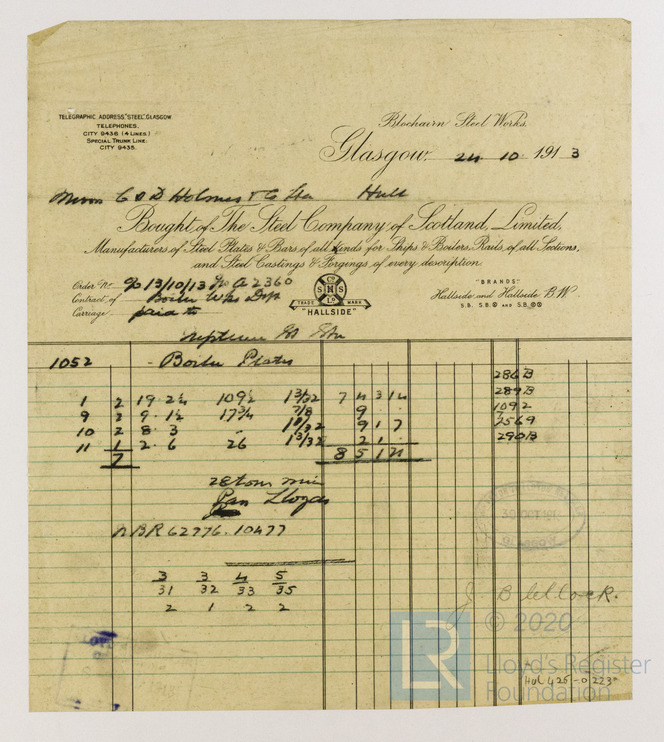 TELEGRAPHIC ADDRESS, "STEEL", GLASGOW
TELEPHONES.
CITY 9436 (4 LINES)
SPECIAL TRUNK LINE:
CITY 9435.
Blochairn Steel Works.
Glasgow, 24 10 1913
C & D Holmes & Co Hull
Bought of The Steel Company of Scotland, Limited,
Manufacturers of Steel Plates & Bars of all kinds for Ships & Boilers, Rails of all Sections,
and Steel Castings & Forgings of every description.
Order No. 13/10/13 No A 2360
Contract of Boiler
Carriage paid to
TRADE MARK
"HALLSIDE"
"BRANDS"
Hallside and Hallside B.W.
S.B. S.B. AND S.B.
1052 Boiler Plates
286B
1 2 19. 2¼ 109½ 1 3/32 7 4 3 14 289B
9 2 9. 1½ 17¾ 7/8 9 1092
10 2 8. 3 " 9 1 7 7569
11 1 2. 6 26 1 3/32 2 1 290B
7 8 5 1 21
28 tons min
Lloyds
NBR 62776. 10477
3 3 4 5
31 32 33 35
2 1 2 2
30 OCT 191
GLASGOW
© 2020
LR
Lloyd's Register
Foundation